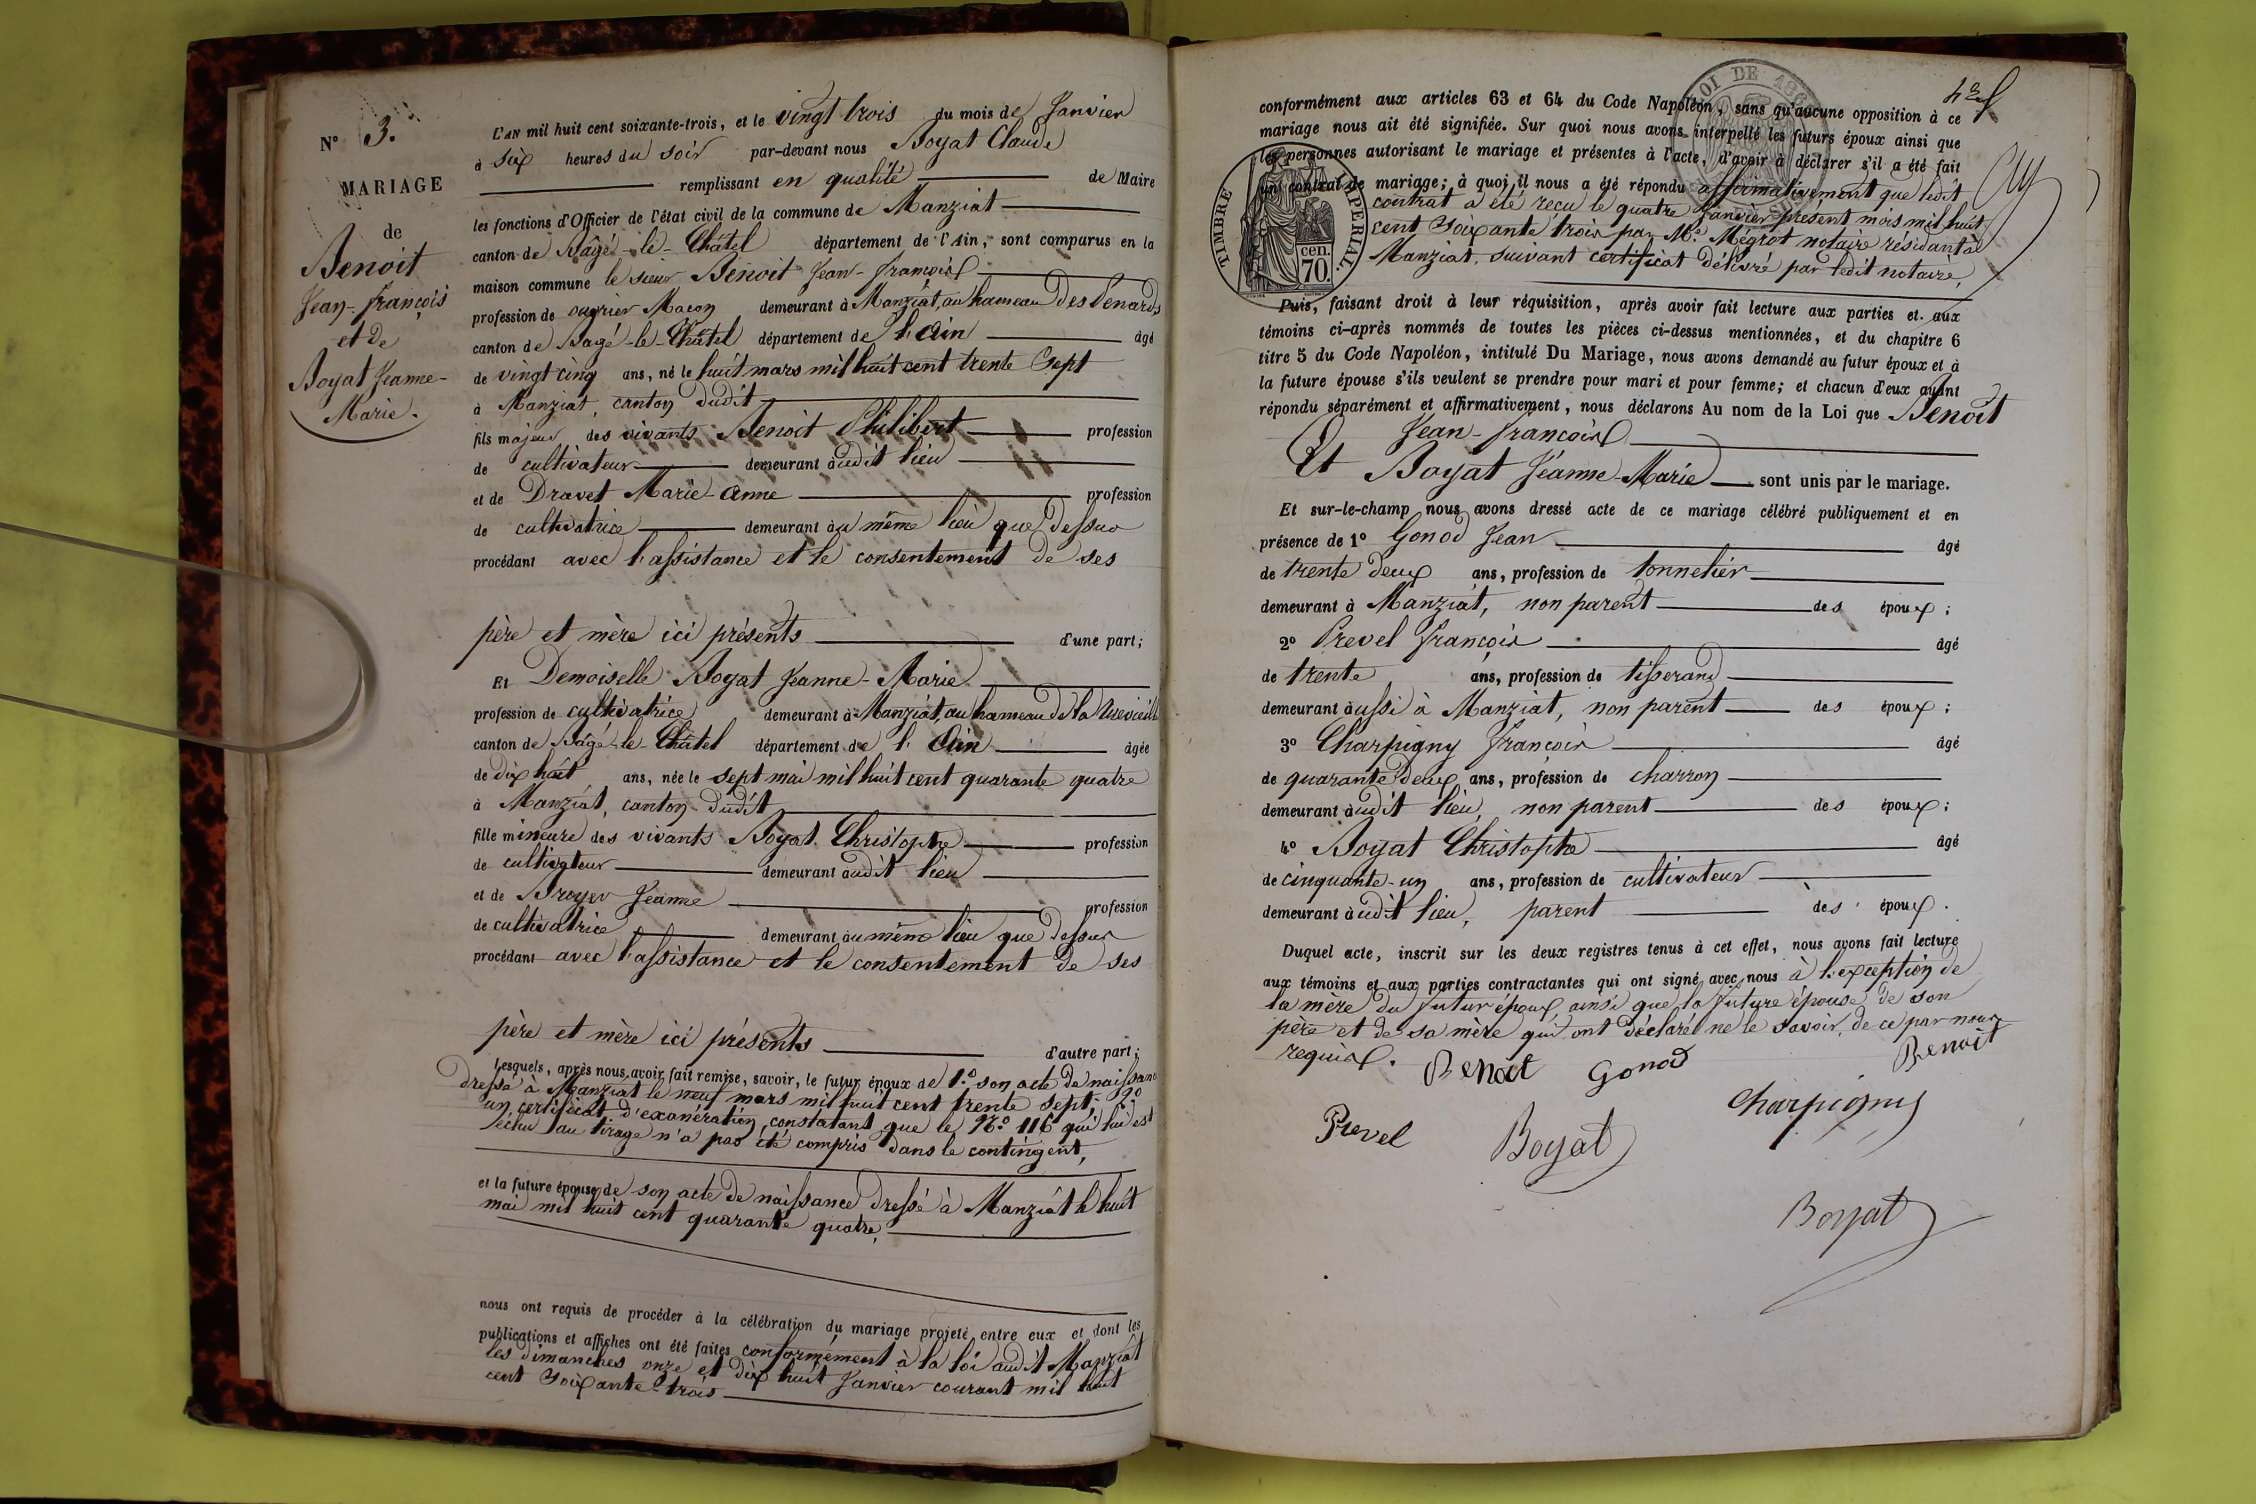 N° 3.
MARIAGE
de
Benoit
Jean-françois
et de
Boyat Jeanne-
Marie.
L'AN mil huit cent soixante-trois, et le vingt trois du mois de Janvier
à six heures du soir par-devant nous Boyat Claude
remplissant en qualité de Maire
les fonctions d'Officier de l'état civil de la commune de Manziat
canton de Bâgé-le-Châtel département de l'Ain, sont comparus en la
maison commune le sieur Benoit Jean-françois
profession de ouvrier Maçon demeurant à Manziat, au hameau des Penards
canton de Bagé-le-Châtel département de l'Ain âgé
de vingt cinq ans, né le huit mars mil huit cent trente sept
à Manziat, canton dudit
fils majeur des vivants Benoit Philibert profession
de cultivateur demeurant audit lieu
et de Dravet Marie-anne profession
de cultivatrice demeurant au même lieu que dessus
procédant avec l'assistance et le consentement de ses
père et mère ici présents d'une part;
Et Demoiselle Boyat Jeanne-Marie
profession de cultivatrice demeurant à Manziat, au hameau de la
canton de Bâgé-le-Châtel département de l'Ain âgée
de dix huit ans, née le sept mai mil huit cent quarante quatre
à Manziat, canton dudit
fille mineure des vivants Boyat Christophe profession
de cultivateur demeurant audit lieu
et de Broyer Jeanne profession
de cultivatrice demeurant au même lieu que dessus
procédant avec l'assistance et le consentement de ses
père et mère ici présents d'autre part;
Lesquels, après nous avoir fait remise, savoir, le futur époux de 1.° son acte de naissance
dressé à Manziat le neuf mars mil huit cent trente sept; 2°
un certificat d'exonération, constatant que le N.° 116 qui lui est
échu au tirage n'a pas été compris dans le contingent,
et la future épouse de son acte de naissance dressé à Manziat le huit
mai mil huit cent quarante quatre,
nous ont requis de procéder à la célébration du mariage projeté entre eux et dont les
publications et affiches ont été faites conformément à la loi audit Manziat
les dimanches onze et dix huit Janvier courant mil huit
cent soixante-trois
conformément aux articles 63 et 64 du Code Napoléon, sans qu'aucune opposition à ce
mariage nous ait été signifiée. Sur quoi nous avons interpellé les futurs époux ainsi que
les personnes autorisant le mariage et présentes à l'acte, d'avoir à déclarer s'il a été fait
un contrat de mariage; à quoi il nous a été répondu affirmativement que ledit
contrat a été reçu le quatre Janvier présent mois mil huit
cent soixante trois par M.e Mégrot notaire résidant à
Manziat, suivant certificat délivré par ledit notaire,
TIMBRE IMPERIAL.
70 cen.
Puis, faisant droit à leur réquisition, après avoir fait lecture aux parties et aux
témoins ci-après nommés de toutes les pièces ci-dessus mentionnées, et du chapitre 6
titre 5 du Code Napoléon, intitulé Du Mariage, nous avons demandé au futur époux et à
la future épouse s'ils veulent se prendre pour mari et pour femme; et chacun d'eux ayant
répondu séparément et affirmativement, nous déclarons Au nom de la Loi que Benoit
Jean-françois
Et Boyat Jeanne-Marie sont unis par le mariage.
Et sur-le-champ nous avons dressé acte de ce mariage célébré publiquement et en
présence de 1° Gonod Jean âgé
de trente deux ans, profession de tonnelier
demeurant à Manziat, non parent des époux;
2° Prevel françois âgé
de trente ans, profession de tisserand
demeurant aussi à Manziat, non parent des époux;
3° Charpigny françois âgé
de quarante deux ans, profession de charron
demeurant audit lieu, non parent des époux;
4° Boyat Christophe âgé
de cinquante-un ans, profession de cultivateur
demeurant audit lieu, parent des époux.
Duquel acte, inscrit sur les deux registres tenus à cet effet, nous avons fait lecture
aux témoins et aux parties contractantes qui ont signé avec nous à l'exception de
la mère du futur époux, ainsi que la future épouse de son
père et de sa mère qui ont déclaré ne le savoir, de ce par nous
requis.
Benoit Gonod Benoit
Charpigny
Prevel Boyat
Boyat